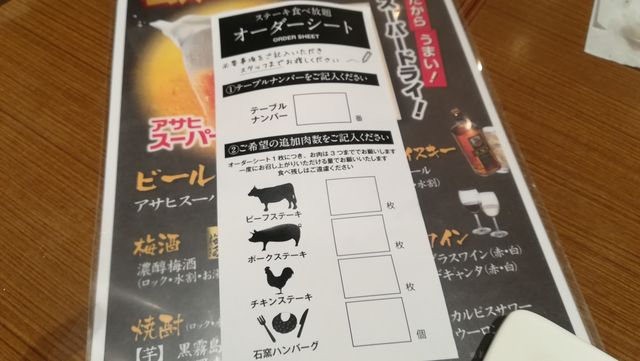 ステーキ食べ放題
オーダーシート
ORDER SHEET
必要事項をご記入いただき
スタッフまでお渡しください
①テーブルナンバーをご記入ください
テーブル
ナンバー
番
②ご希望の追加肉数をご記入ください
オーダーシート1枚につき、お肉は3つまででお願いします
一度にお召し上がりいただける量でお願いいたします
食べ残しはご遠慮ください
ビーフステーキ
枚
ポークステーキ
枚
チキンステーキ
枚
石窯ハンバーグ
個
だから うまい!
スーパードライ!
アサヒ
スーパー
ビール
アサヒスーパ
梅酒
濃醇梅酒
(ロック・水割・お湯
焼酎
(ロック・水
【芋】
黒霧島
イスキー
ール
水割)
イン
グラスワイン(赤・白)
デキャンタ(赤・白)
カルピスサワー
ウーロン